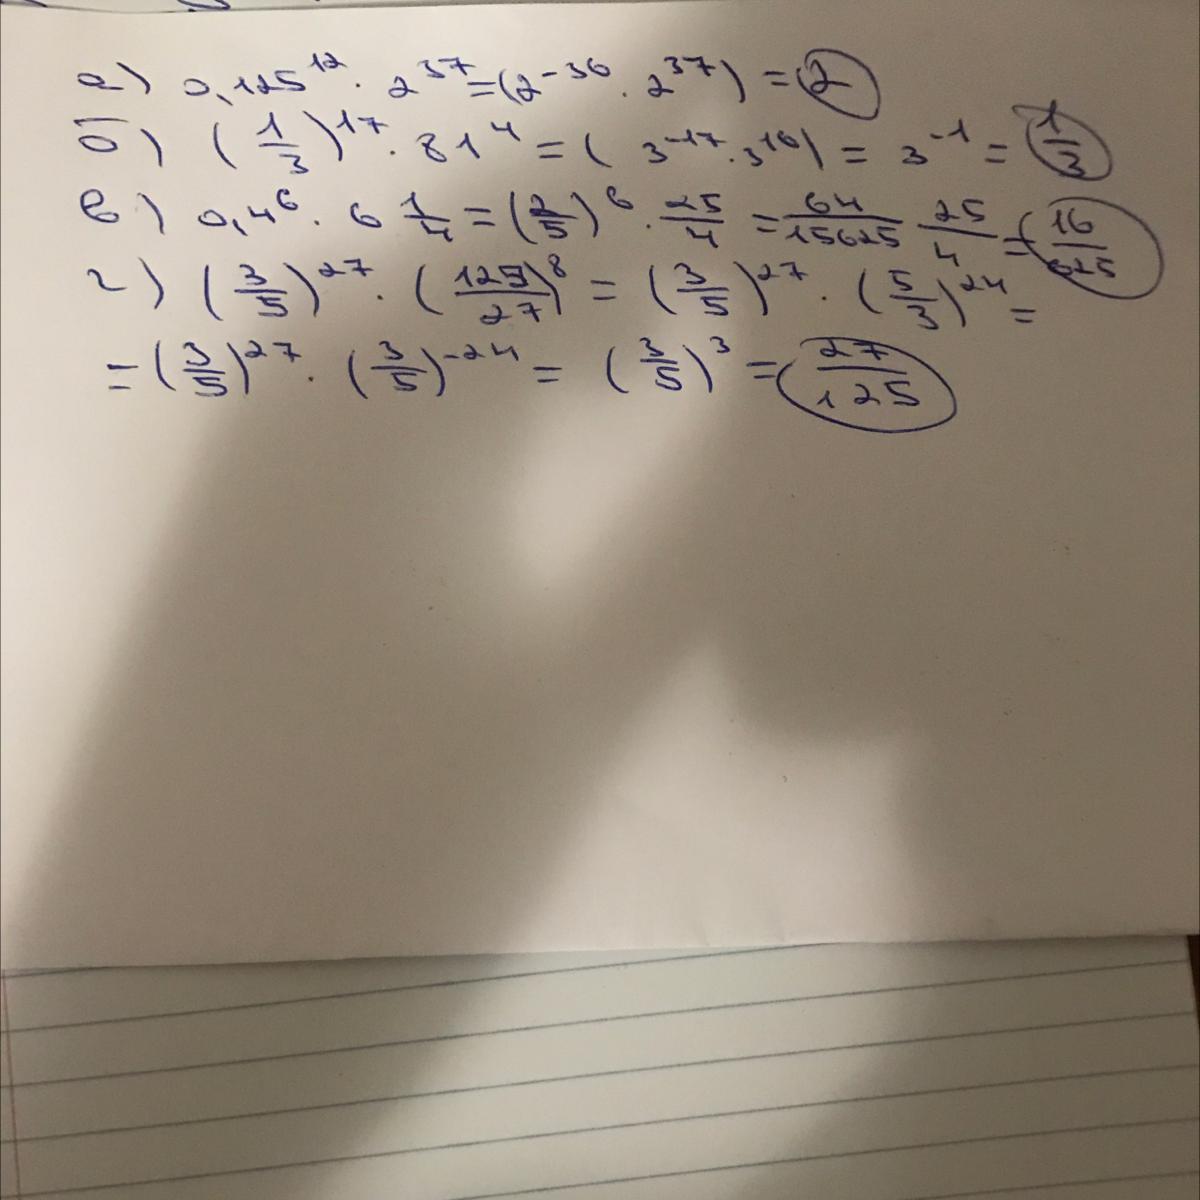 а) 0,125^12 · 2^37 = (2^-36 · 2^37) = 2
б) (1/3)^17 · 81^4 = (3^-17 · 3^16) = 3^-1 = 1/3
в) 0,4^6 · 6 1/4 = (2/5)^6 · 25/4 = 64/15625 25/4 = 16/625
г) (3/5)^27 · (125/27)^8 = (3/5)^27 · (5/3)^24 =
= (3/5)^27 · (3/5)^-24 = (3/5)^3 = 27/125